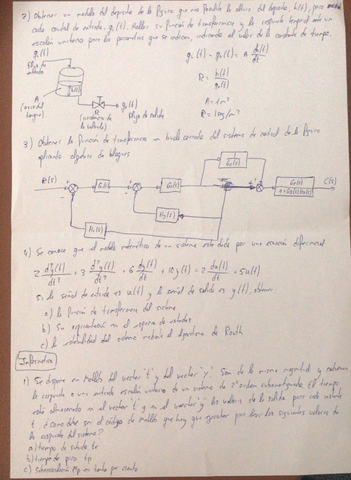 2) Obtener un modelo del depósito de la figura que nos permita la altura del depósito, h(t), para
cada caudal de entrada, qi(t). Hallar su función de transferencia y la respuesta temporal ante un
escalón unitario para los parámetros que se indican, indicando el valor de la constante de tiempo.
qi(t)
Flujo de
entrada
h(t)
A
(área del
tanque)
R
(resistencia de
la válvula)
qo(t)
Flujo de salida
qi(t) - qo(t) = A dh(t)/dt
R = h(t)/qo(t)
A = 1 m²
3) Obtener la función de transferencia en bucle cerrado del sistema de control de la figura
aplicando álgebra de bloques
R(s)
C(s)
4) Se conoce que el modelo matemático de un sistema está dado por una ecuación diferencial
2 d³y(t)/dt³ + 3 d²y(t)/dt² + 6 dy(t)/dt + 10y(t) = 2 du(t)/dt + 5u(t)
Si la señal de entrada es u(t) y la señal de salida es y(t), obtener:
a) la función de transferencia del sistema
b) Su representación en el espacio de estados
c) la estabilidad del sistema mediante el algoritmo de Routh
Informática
1) Se dispone en Matlab del vector 't' y del vector 'y'. Son de la misma magnitud y contienen
la respuesta a una entrada escalón unitario de un sistema de 2º orden subamortiguado. El tiempo
está almacenado en el vector 't' y en el vector 'y' los valores de la salida para cada instante
t. ¿Cómo debe ser el código de Matlab que hay que ejecutar para hallar los siguientes valores de
la respuesta del sistema?
a) tiempo de subida tr
b) tiempo de pico tp
c) sobreoscilación Mp en tanto por ciento